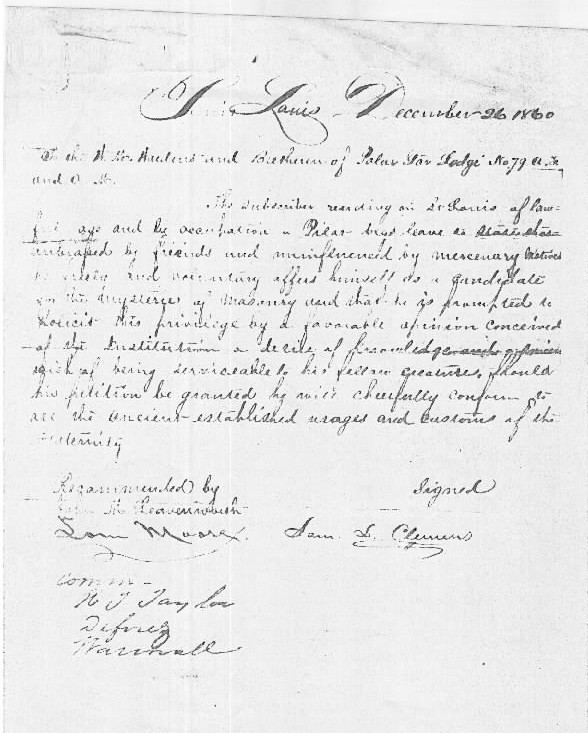 Saint Louis, December 26 1860
To the W. M. Wardens and Bretheren of Polar Star Lodge No 79 A. F.
and A M.
The subscriber residing in St Louis of law-
ful age and by occupation a Pilot begs leave to state that
unbiased by friends and uninfluenced by mercenary motives
freely and voluntary offers himself as a Candidate
for the mysteries of Masonry and that he is prompted to
solicit this privilege by a favorable opinion conceived
of the Institution a desire of knowledge and a sincere
wish of being serviceable to his fellow creatures, should
his petition be granted he will cheefully conform to
all the ancient established usages and customs of the
fraternity
Recommended by
Signed
John M. Leavenworth
Tom Moore.
Sam. L. Clemens
Comm -
H T Taylor
Defriez
Wannall